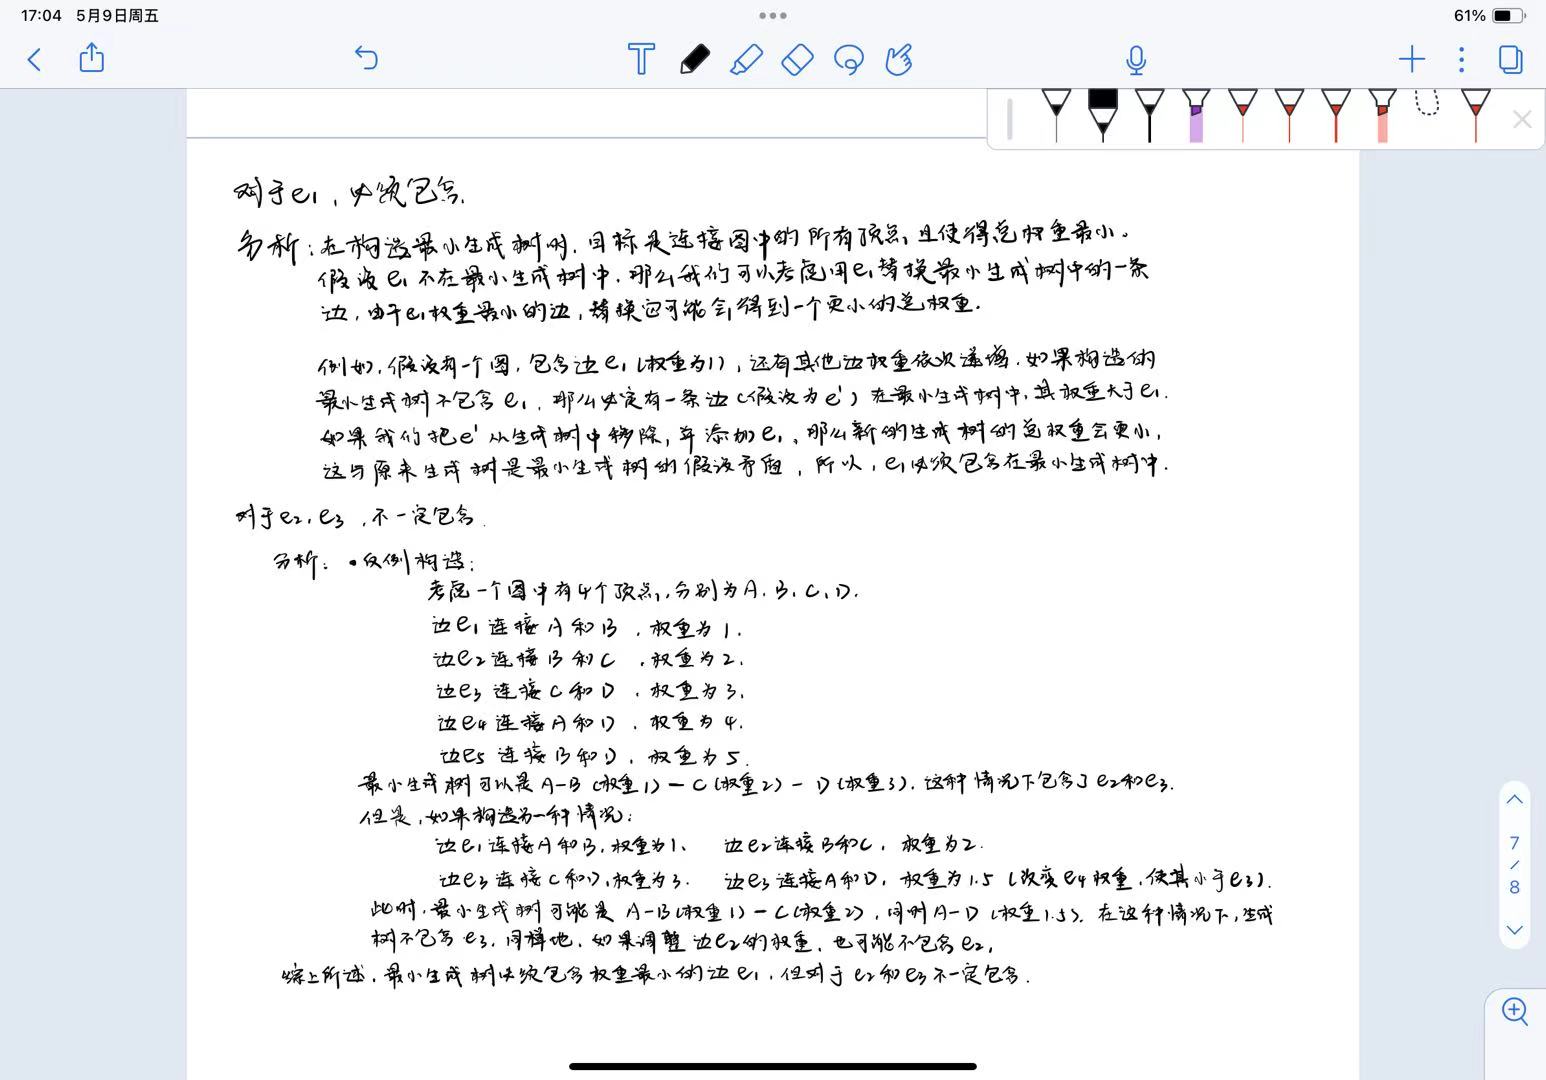 17:04 5月9日周五
61%
对于e1，必须包含.
分析：在构造最小生成树时，目标是连接图中的所有顶点，且使得总权重最小。
假设e1不在最小生成树中，那么我们可以考虑用e1替换最小生成树中的一条
边，由于e1权重最小的边，替换它可能会得到一个更小的总权重.
例如，假设有一个图，包含边e1（权重为1），还有其他边权重依次递增.如果构造的
最小生成树不包含e1，那么必定有一条边（假设为e'）在最小生成树中，其权重大于e1.
如果我们把e'从生成树中移除，并添加e1，那么新的生成树的总权重会更小，
这与原来生成树是最小生成树的假设矛盾，所以，e1必须包含在最小生成树中.
对于e2，e3，不一定包含.
分析：•反例构造：
考虑一个图中有4个顶点，分别为A，B，C，D.
边e1连接A和B，权重为1.
边e2连接B和C，权重为2.
边e3连接C和D，权重为3.
边e4连接A和D，权重为4.
边e5连接B和D，权重为5.
最小生成树可以是A-B（权重1）-C（权重2）-D（权重3），这种情况下包含了e2和e3.
但是，如果构造另一种情况：
边e1连接A和B，权重为1、 边e2连接B和C，权重为2.
边e3连接C和D，权重为3. 边e3连接A和D，权重为1.5（改变e4权重，使其小于e3）.
此时，最小生成树可能是A-B（权重1）-C（权重2），同时A-D（权重1.5），在这种情况下，生成
树不包含e3，同样地，如果调整边e2的权重，也可能不包含e2，
综上所述，最小生成树必须包含权重最小的边e1，但对于e2和e3不一定包含.
7
/
8